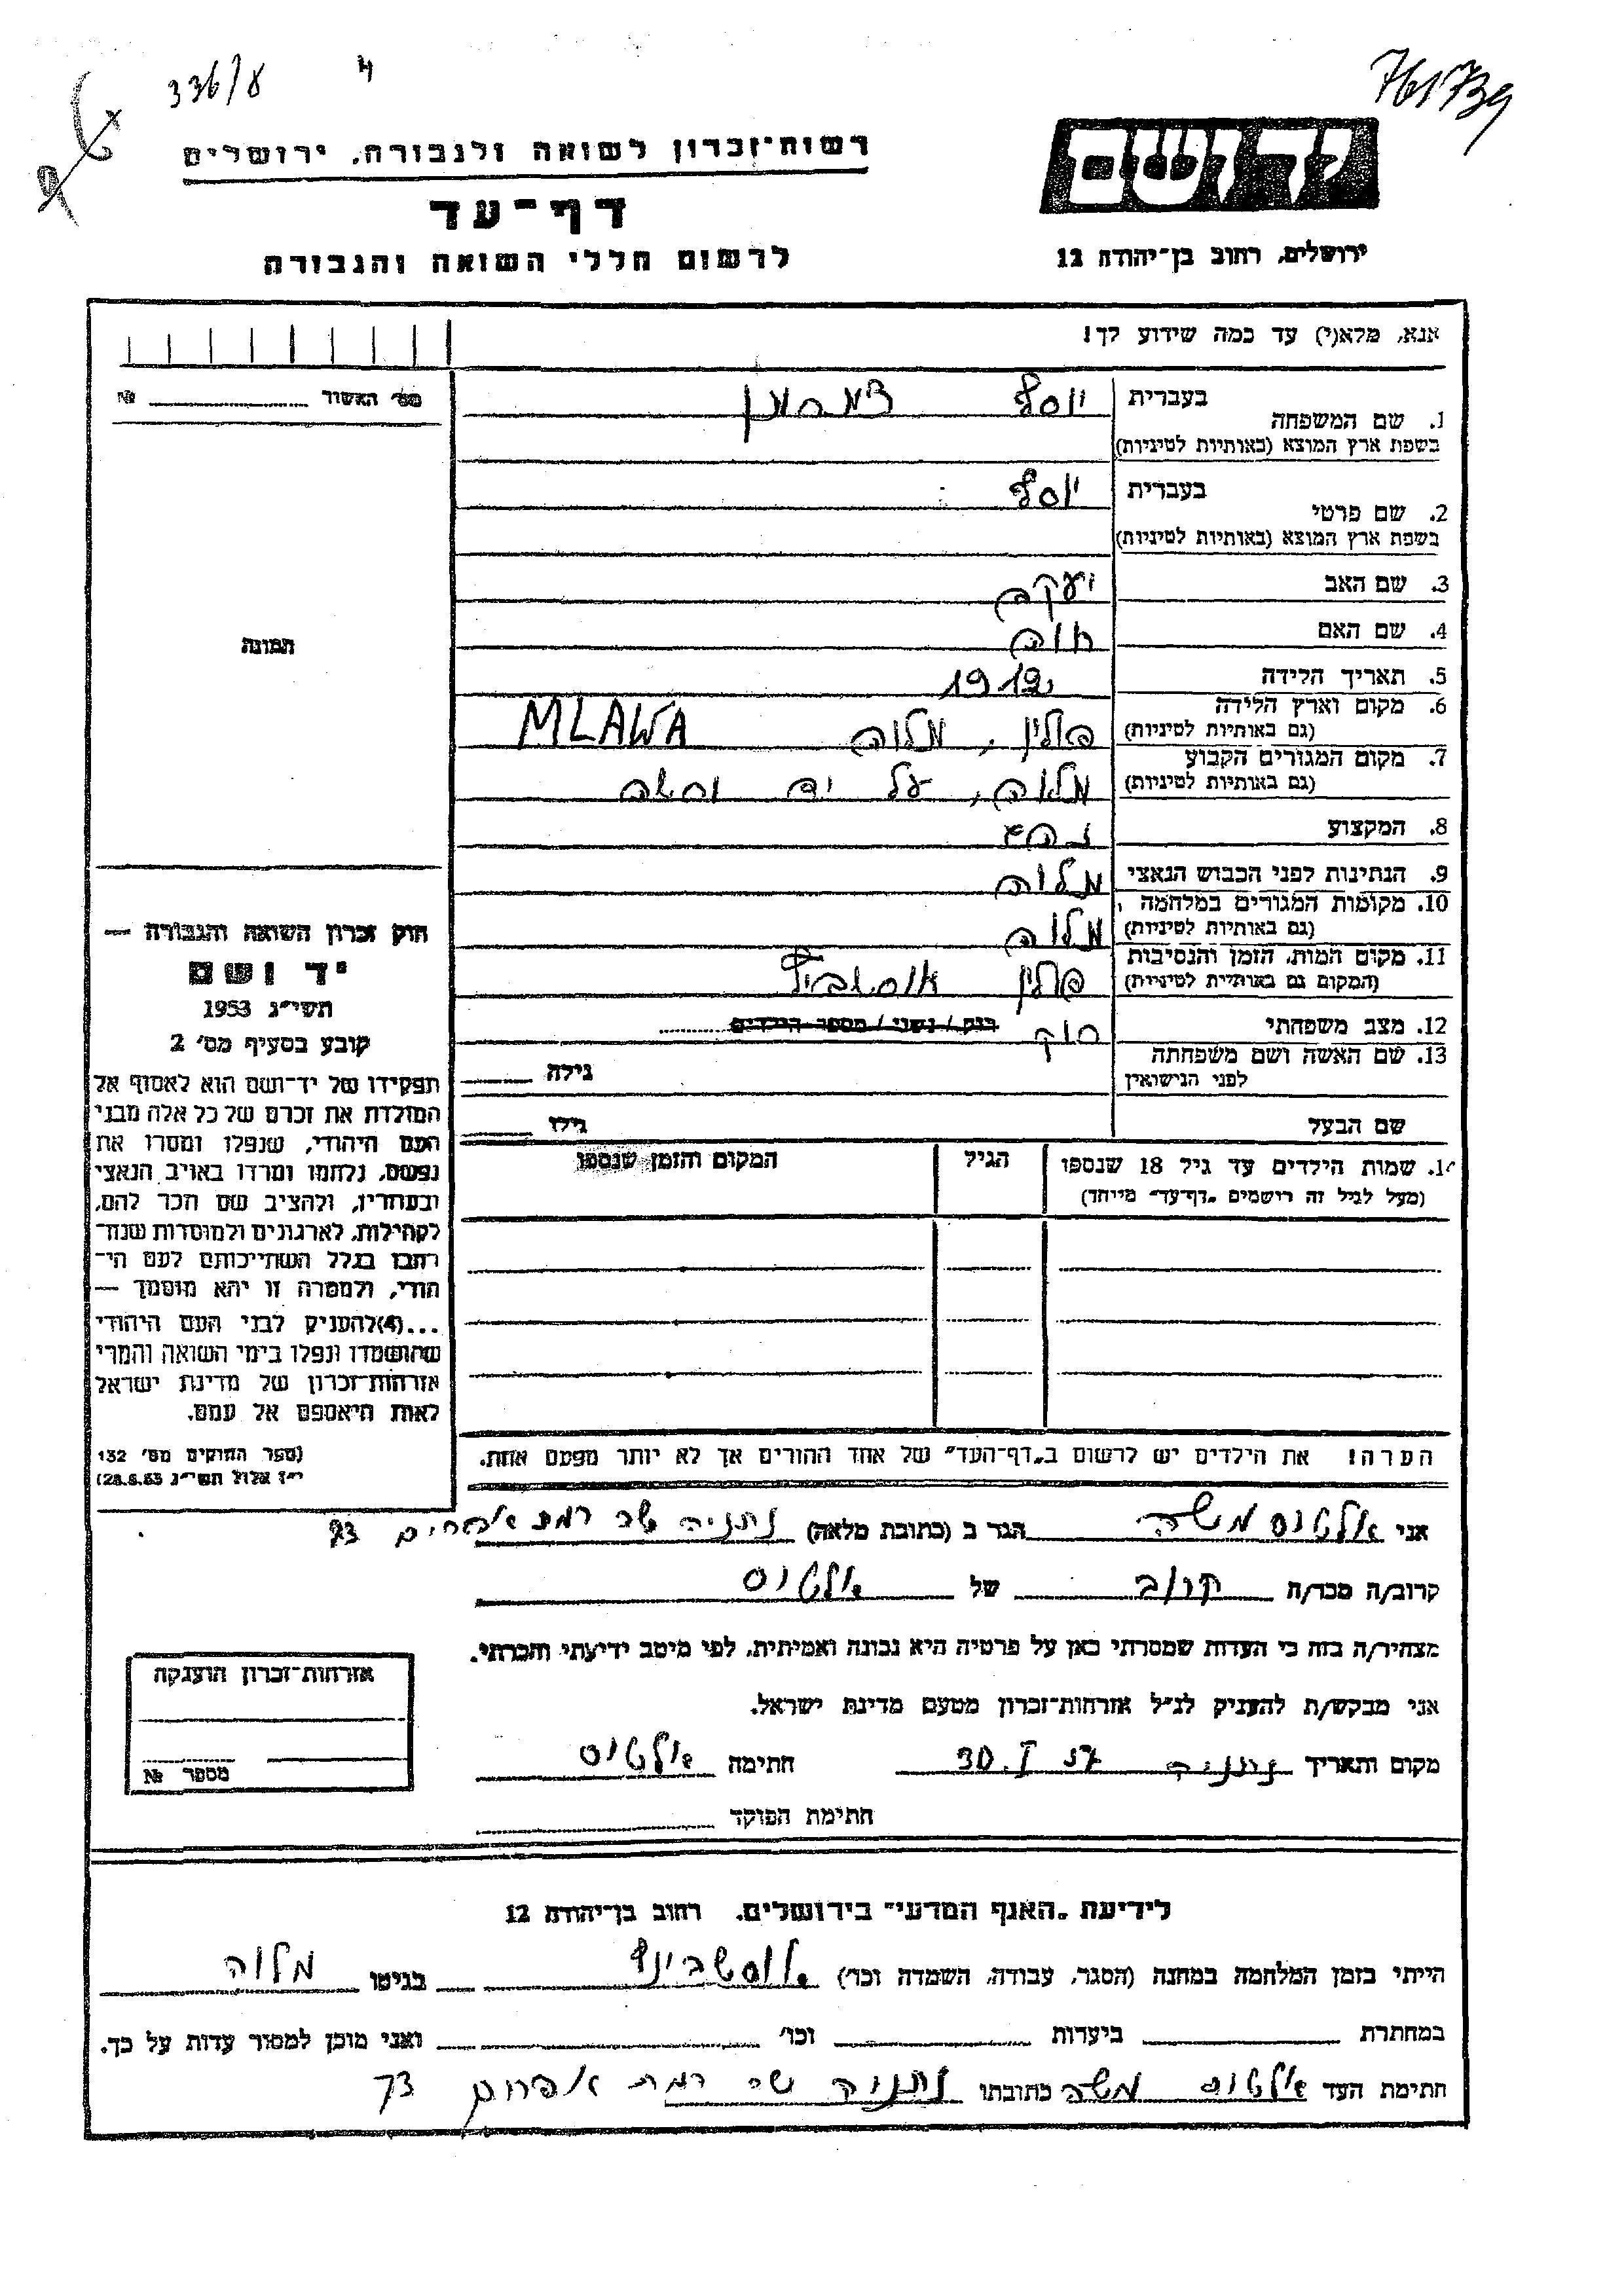 336/8 4
761739
יד ושם
רשות־זכרון לשואה ולגבורה, ירושלים
דף־עד
לרשום חללי השואה והגבורה
ירושלים, רחוב בן־יהודה 12
אנא, מלא(י) עד כמה שידוע לך!
מס' האשור №
1. שם המשפחה
בעברית יוסף
בשפת ארץ המוצא (באותיות לטיניות)
2. שם פרטי
בעברית יוסף
בשפת ארץ המוצא (באותיות לטיניות)
3. שם האב יעקב
4. שם האם חוה
5. תאריך הלידה 1912
6. מקום וארץ הלידה
(גם באותיות לטיניות) פולין, מלוה MLAWA
7. מקום המגורים הקבוע
(גם באותיות לטיניות) מלוה, על יד ורשה
8. המקצוע
9. הנתינות לפני הכבוש הנאצי מלוה
10. מקומות המגורים במלחמה
(גם באותיות לטיניות) מלוה
11. מקום המות, הזמן והנסיבות
(המקום גם באותיות לטיניות) פולין אושביץ
12. מצב משפחתי רוק רוק / נשוי / מספר הילדים
13. שם האשה ושם משפחתה
לפני הנישואין גילה
שם הבעל גילו
14. שמות הילדים עד גיל 18 שנספו
(מעל לגיל זה רושמים "דף־עד" מיוחד)
הגיל
המקום והזמן שנספו
הערה! את הילדים יש לרשום ב"דף־העד" של אחד ההורים אך לא יותר מפעם אחת.
התמונה
חוק זכרון השואה והגבורה —
יד ושם
תשי"ג 1953
קובע בסעיף מס' 2
תפקידו של יד־ושם הוא לאסוף אל
המולדת את זכרם של כל אלה מבני
העם היהודי, שנפלו ומסרו את
נפשם, נלחמו ומרדו באויב הנאצי
ובעוזריו, ולהציב שם וזכר להם,
לקהילות, לארגונים ולמוסדות שנח־
רבו בגלל השתייכותם לעם הי־
הודי, ולמטרה זו יהא מוסמך —
...(4)להעניק לבני העם היהודי
שהושמדו ונפלו בימי השואה והמרי
אזרחות־זכרון של מדינת ישראל
לאות היאספם אל עמם.
(ספר החוקים מס' 132
י"ז אלול תשי"ג 28.8.53)
אני אלטוס משה הגר ב (כתובת מלאה) נתניה שכ רמת אפרים 73
קרוב/ה מכר/ה קרוב של אלטוס
מצהיר/ה בזה כי העדות שמסרתי כאן על פרטיה היא נכונה ואמיתית, לפי מיטב ידיעתי והכרתי.
אני מבקש/ת להעניק לנ"ל אזרחות־זכרון מטעם מדינת ישראל.
מקום ותאריך נתניה 30. I. 57 חתימה אלטוס
חתימת הפוקד
אזרחות־זכרון הוענקה
מספר №
לידיעת "האגף המדעי" בירושלים, רחוב בן־יהודה 12
הייתי בזמן המלחמה במחנה (הסגר, עבודה, השמדה וכד') אושבינץ בגיטו מלוה
במחתרת ביערות וכו' ואני מוכן למסור עדות על כך.
חתימת העד אלטוס משה כתובתו נתניה שכ רמת אפרים 73